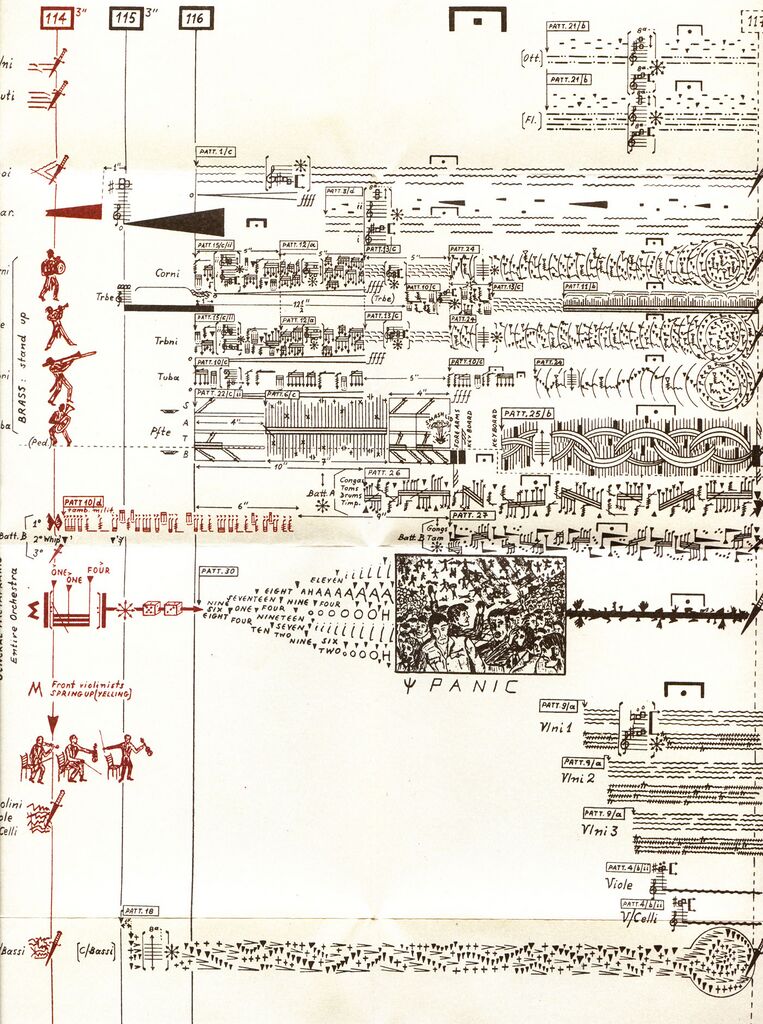 114 3" 115 3" 116
PATT. 21/b
(Ott.)
PATT. 21/b
(Fl.)
8ª
PATT. 1/c
1"
ffff
PATT. 3/d
ii
i
PATT. 15/c/ii 5" PATT. 12/a 5" PATT. 13/c 5" PATT. 24
Corni
Trbe
12½" (Trbe) PATT. 10/c PATT. 13/c PATT. 11/b
PATT. 15/c/ii PATT. 12/a PATT. 13/c PATT. 24
Trbni
ffff
PATT. 10/c PATT. 10/c PATT. 24
Tuba 5"
ffff
BRASS: stand up
PATT. 22/c/ii PATT. 6/c 4"
S
A 4"
Pfte
T
B
SMASH LID
FOREARMS
KEYBOARD
KEYBOARD
PATT. 25/b
(Ped.)
10" 7"
PATT. 26
Batt. A
Conga
Toms
Drums
Timp.
PATT 10/d
tamb. milit.
6" 9"
PATT. 27
Batt. B
1°
2° Whip
3°
Batt. B
Gongs
Tam
Entire Orchestra
ONE ONE FOUR
PATT. 30
ELEVEN iiiiii
EIGHT AHAAAAAAA
NINE SEVENTEEN NINE FOUR
SIX ONE FOUR OOOOOOH
EIGHT FOUR NINETEEN
SEVEN iiiiiiii
TEN TWO
NINE SIX
TWO OOOOH
Ψ PANIC
M Front violinists
SPRING UP (YELLING)
PATT. 9/a
Vlni 1
PATT. 9/a
Vlni 2
PATT. 9/a
Vlni 3
PATT. 4/b/ii
Viole
PATT. 4/b/ii
V/Celli
PATT. 18
8ª
Bassi [C/Bassi]